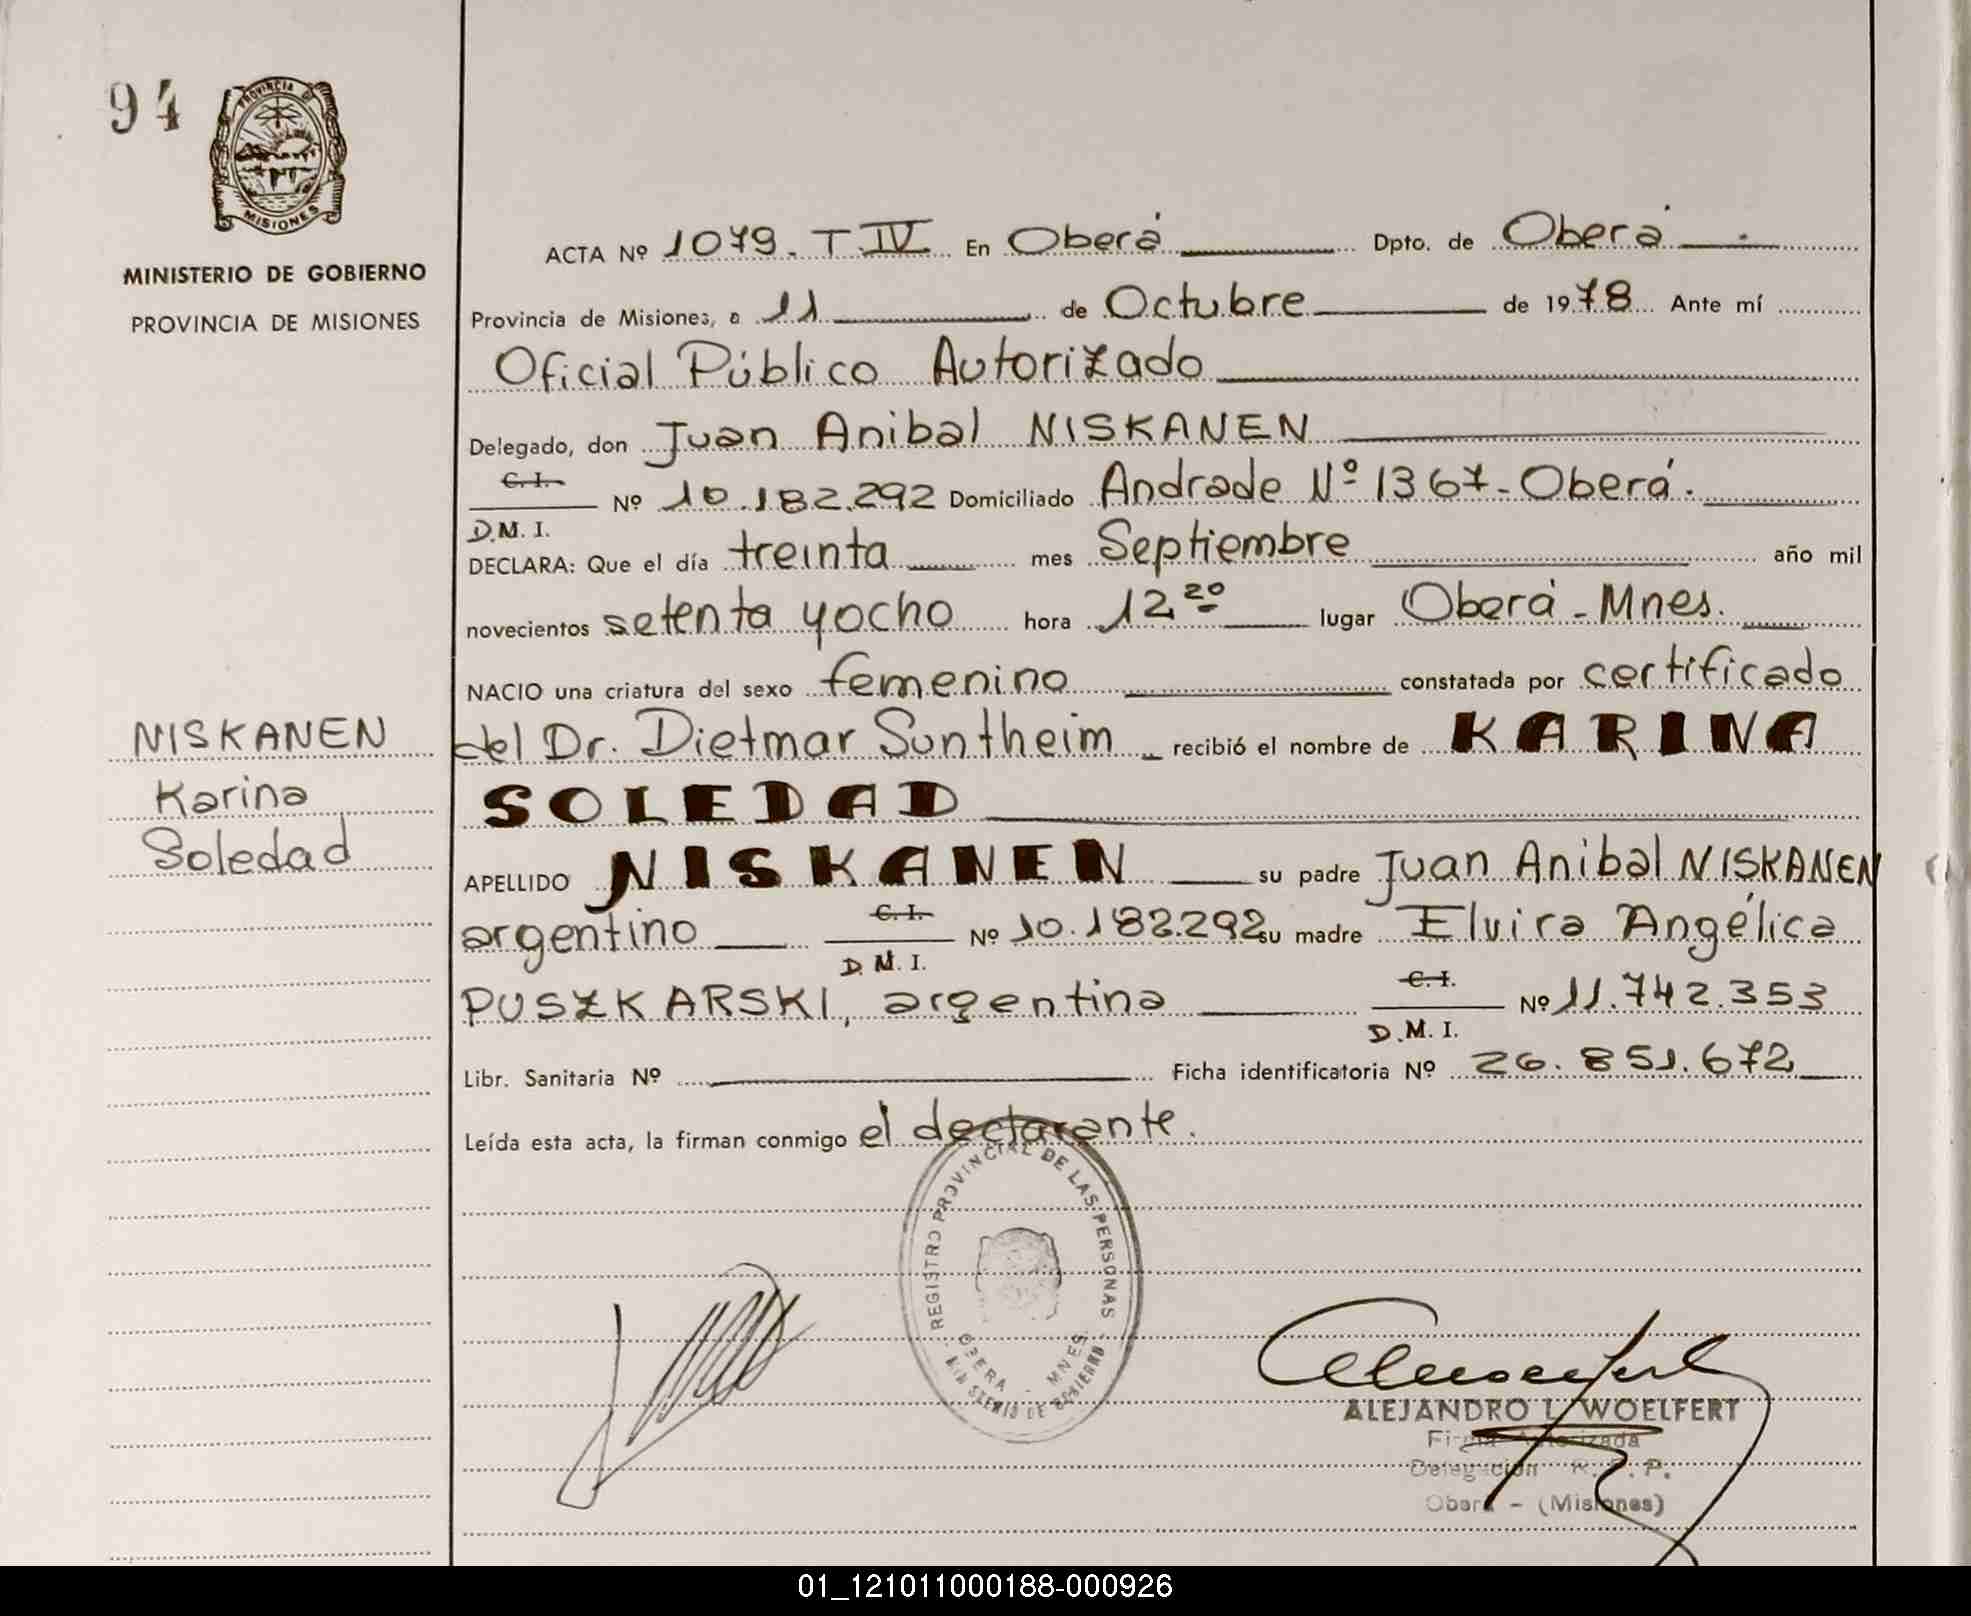 94
PROVINCIA DE
MISIONES
MINISTERIO DE GOBIERNO
PROVINCIA DE MISIONES
NISKANEN
Karina
Soledad
ACTA Nº 1079. T IV En Oberá Dpto. de Oberá
Provincia de Misiones, a 11 de Octubre de 1978 Ante mí
Oficial Público Autorizado
Delegado, don Juan Anibal NISKANEN
C. I.
Nº 10.182.292 Domiciliado Andrade Nº 1367-Oberá.
D. M. I.
DECLARA: Que el día treinta mes Septiembre año mil
novecientos setenta y ocho hora 12 20 lugar Oberá - Mnes.
NACIO una criatura del sexo femenino constatada por certificado
del Dr. Dietmar Suntheim recibió el nombre de KARINA
SOLEDAD
APELLIDO NISKANEN su padre Juan Anibal NISKANEN
argentino C. I. Nº 10.182.292 su madre Elvira Angélica
D. M. I.
PUSZKARSKI, argentina C. I. Nº 11.742.353
D. M. I.
Libr. Sanitaria Nº Ficha identificatoria Nº 26.851.672
Leída esta acta, la firman conmigo el declarante.
REGISTRO PROVINCIAL DE LAS PERSONAS
OBERA - MNES.
MINISTERIO DE GOBIERNO
ALEJANDRO L. WOELFERT
Firma Autorizada
Delegación R. P. P.
Oberá - (Misiones)
01_121011000188-000926